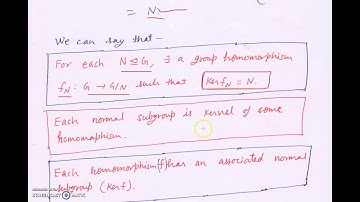 = N
We can say that —
For each N ⊴ G, ∃ a group homomorphism
f_N : G → G/N such that Ker f_N = N.
Each normal subgroup is kernel of some
homomorphism.
Each homomorphism(f) has an associated normal
subgroup (Ker f).
SCREENCAST-O-MATIC